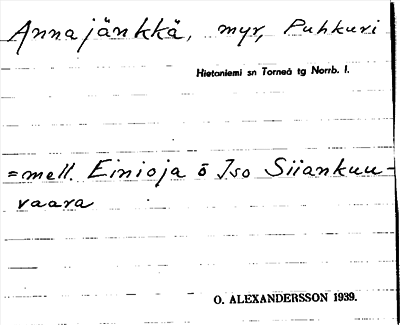 Annajänkkä, myr, Puhkuri
Hietaniemi sn Torneå tg Norrb. l.
= mell. Einioja o Iso Siiankuu-
vaara
O. ALEXANDERSSON 1939.